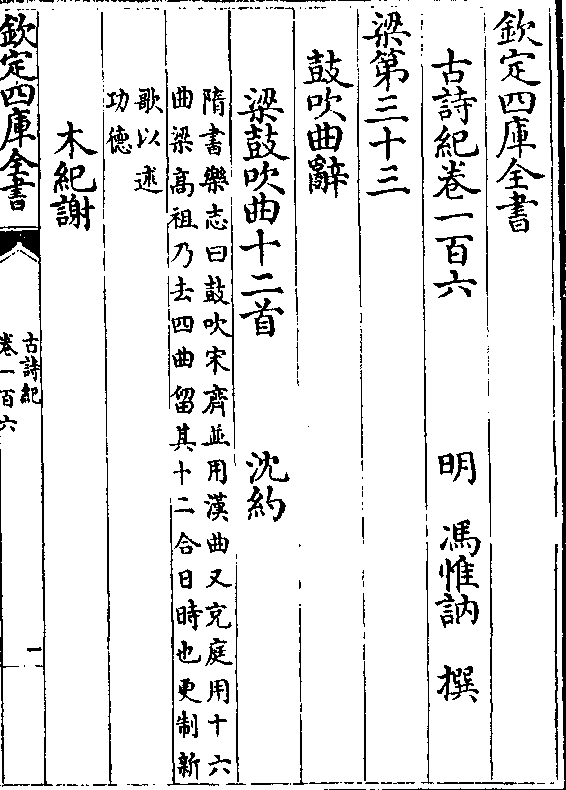 欽定四庫全書
古詩紀卷一百六　明　馮惟訥　撰
梁第三十三
鼓吹曲辭
梁鼓吹曲十二首　沈約
隋書樂志曰鼓吹宋齊並用漢曲又充庭用十六
曲梁高祖乃去四曲留其十二合日時也更制新
歌以述
功德
木紀謝
欽定四庫全書
古詩紀
卷一百六
一